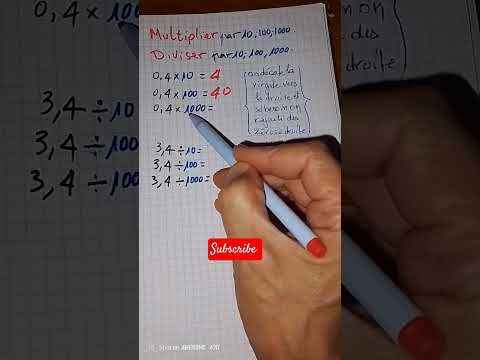 Multiplier par 10, 100, 1000
Diviser par 10, 100, 1000
0,4 × 10 = 4
0,4 × 100 = 40
0,4 × 1000 =
on décale la
virgule vers
la droite et
si besoin on
rajoute des
zéros à droite
3,4 ÷ 10 =
3,4 ÷ 100 =
3,4 ÷ 1000 =
3,4 ÷ 10
3,4 ÷ 100
3,4 ÷ 1000
des
droite
Subscribe